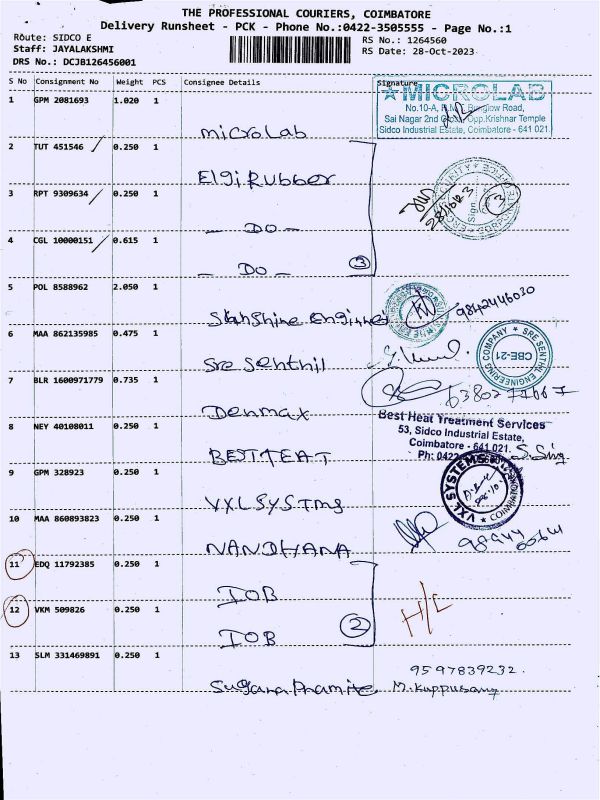 THE PROFESSIONAL COURIERS, COIMBATORE
Delivery Runsheet - PCK - Phone No.:0422-3505555 - Page No.:1
Route: SIDCO E
RS No.: 1264560
Staff: JAYALAKSHMI
RS Date: 28-Oct-2023
DRS No.: DCJB126456001
S No Consignment No Weight PCS Consignee Details Signature
1 GPM 2081693 1.020 1
MICROLAB
No.10-A, Bunglow Road,
Sai Nagar 2nd Opp.Krishnar Temple
Sidco Industrial Estate, Coimbatore - 641 021.
microLab
2 TUT 451546 0.250 1
Elgi Rubber
3 RPT 9309634 0.250 1
- DO -
4 CGL 10000151 0.615 1
- DO - 3
5 POL 8588962 2.050 1
9842446030
6 MAA 862135985 0.475 1
Sre Senthil
SRE SENTHIL ENGINEERING COMPANY
CBE-21
7 BLR 1600971779 0.735 1
Denmax
Best Heat Treatment Services
53, Sidco Industrial Estate,
Coimbatore - 641 021.
Ph: 0422
8 NEY 40108011 0.250 1
BESTHEAT
9 GPM 328923 0.250 1
VXL SYSTMS
VXL SYSTEMS
10 MAA 860893823 0.250 1
NANDHANA
11 EDQ 11792385 0.250 1
IOB
12 VKM 509826 0.250 1
IOB 2
H/L
13 SLM 331469891 0.250 1
9597839232.